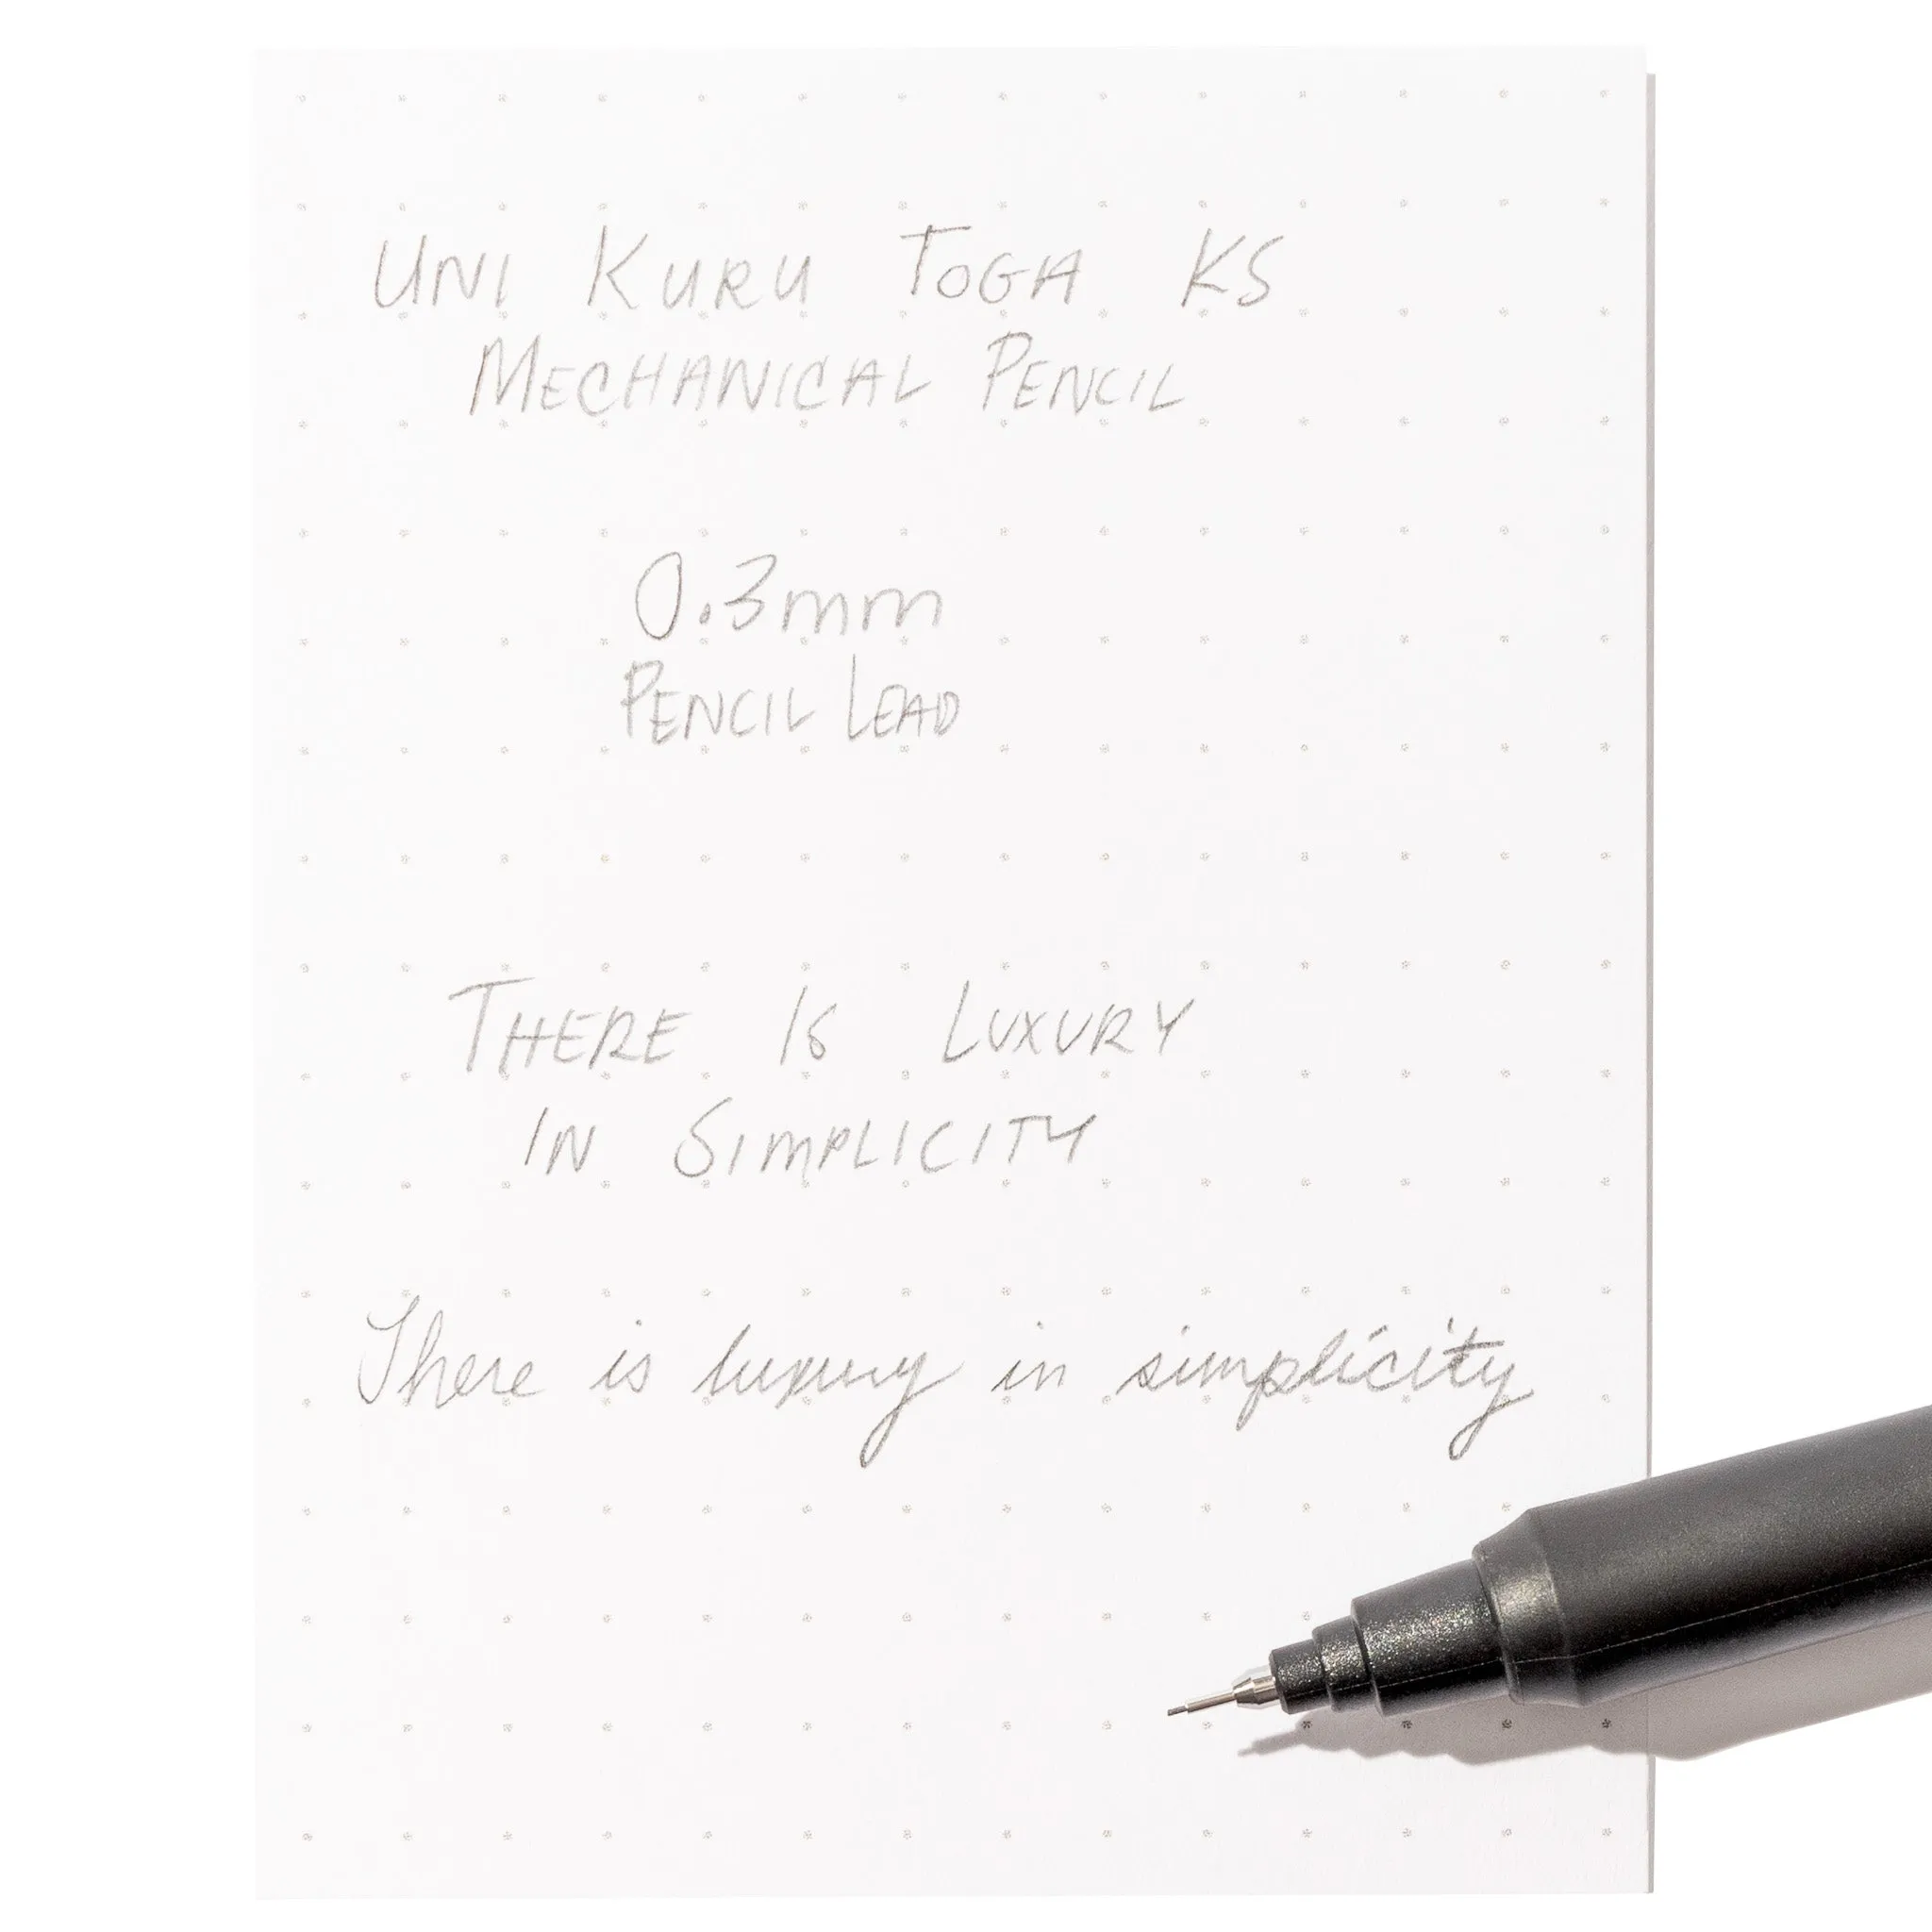 UNI KURU TOGA KS
MECHANICAL PENCIL
0.3mm
PENCIL LEAD
THERE IS LUXURY
IN SIMPLICITY
There is luxury in simplicity